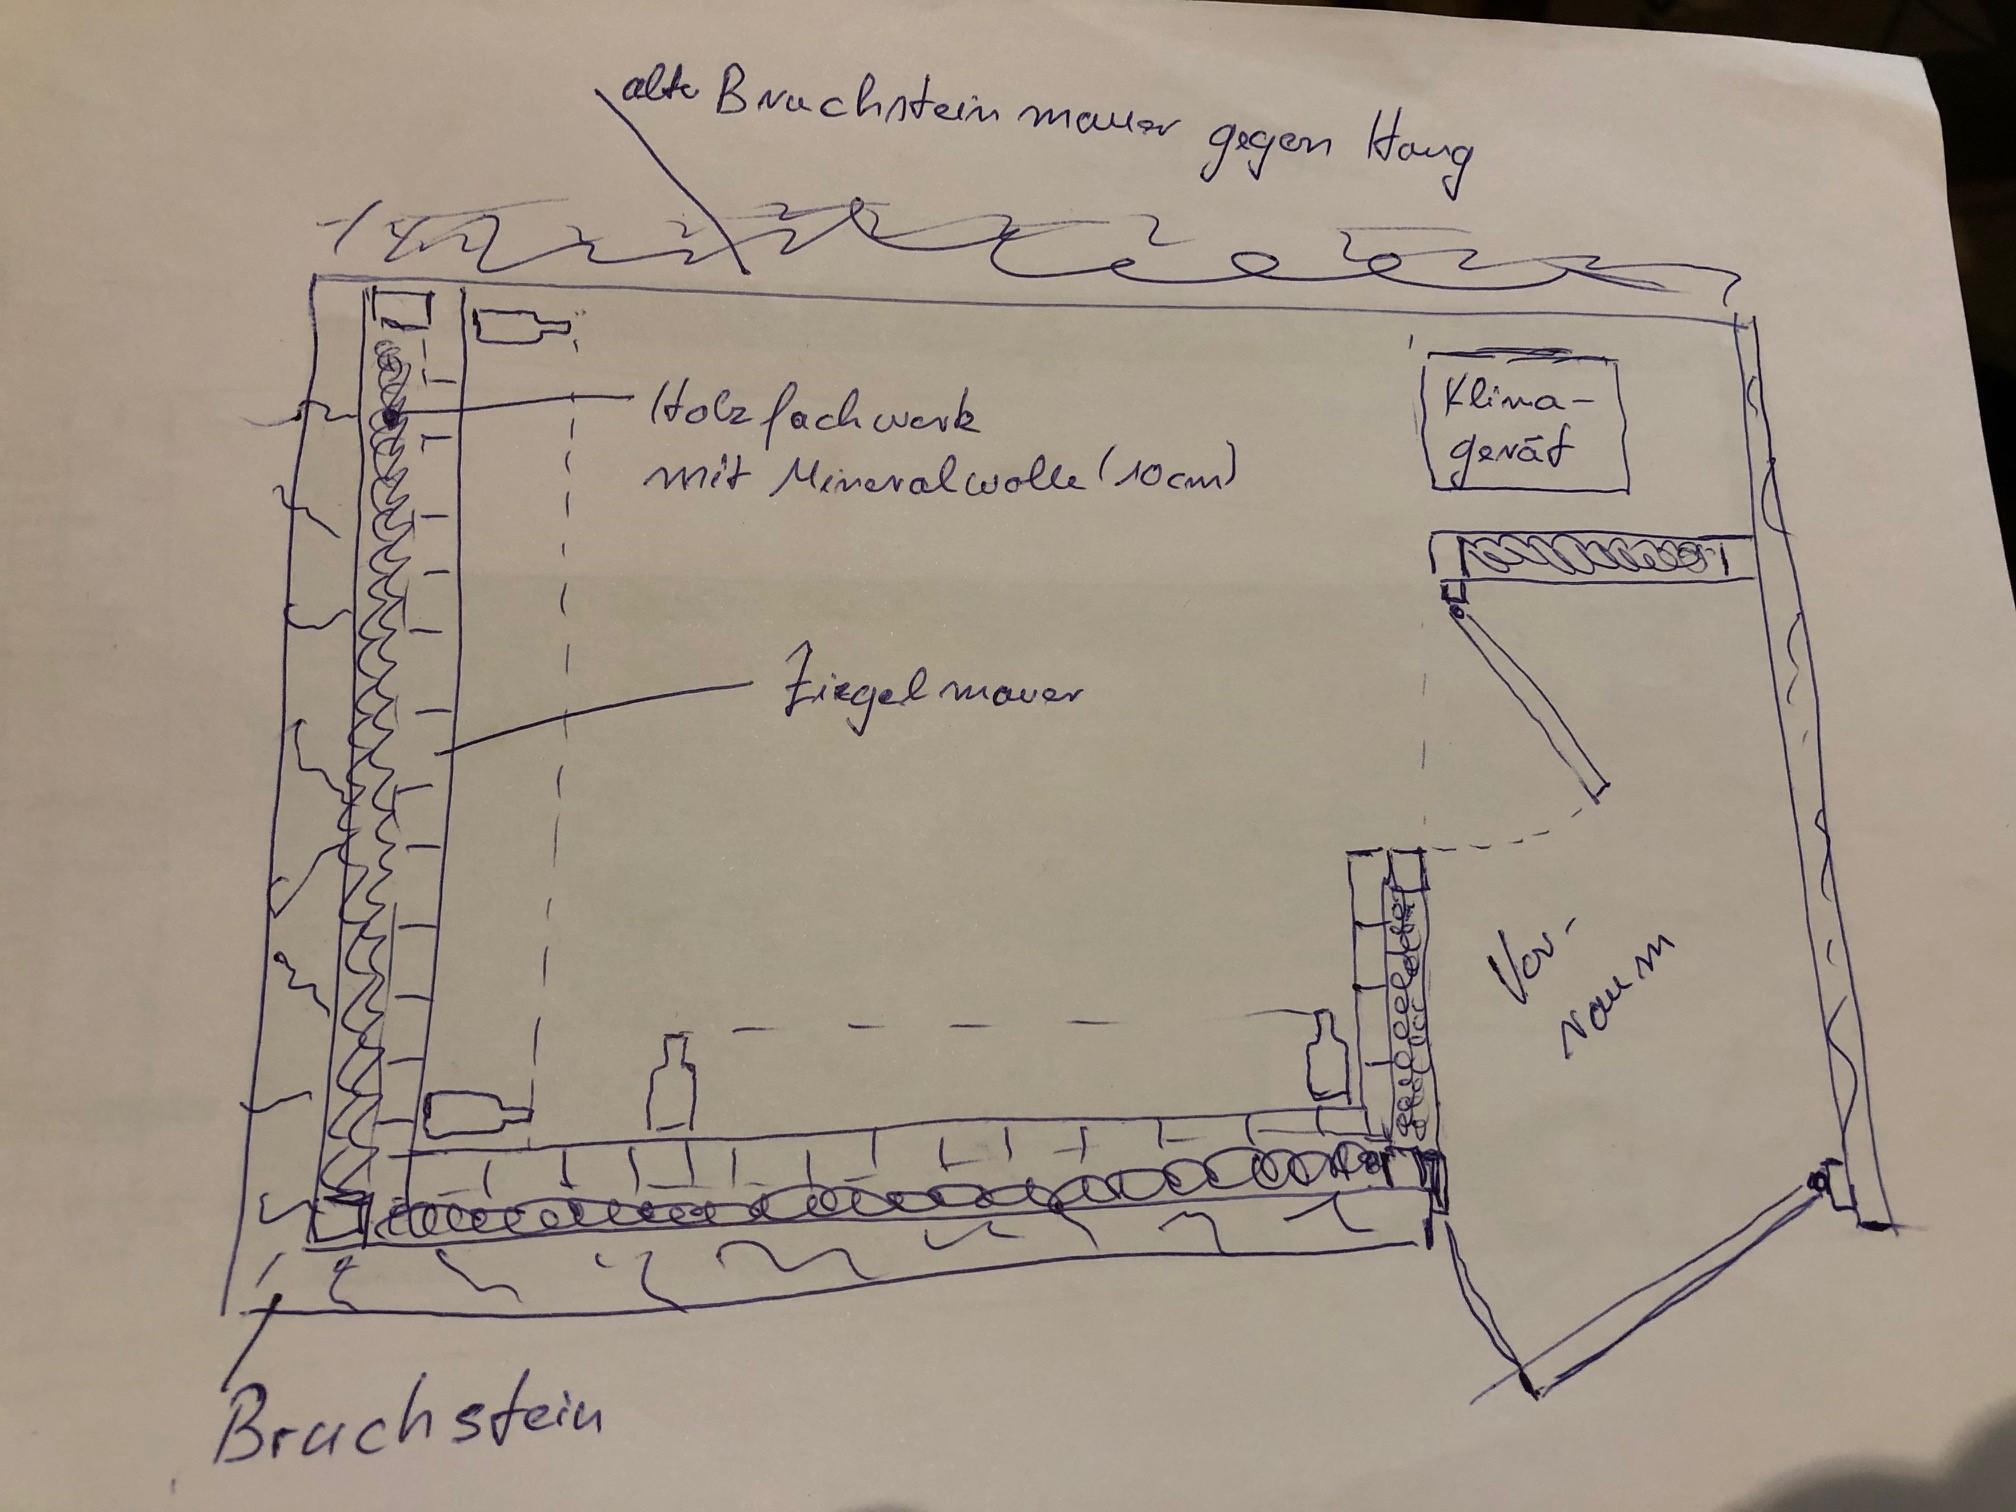 alte Bruchsteinmauer gegen Hang
Holzfachwerk
mit Mineralwolle (10cm)
Klima-
gerät
Ziegelmauer
Vor-
raum
Bruchstein